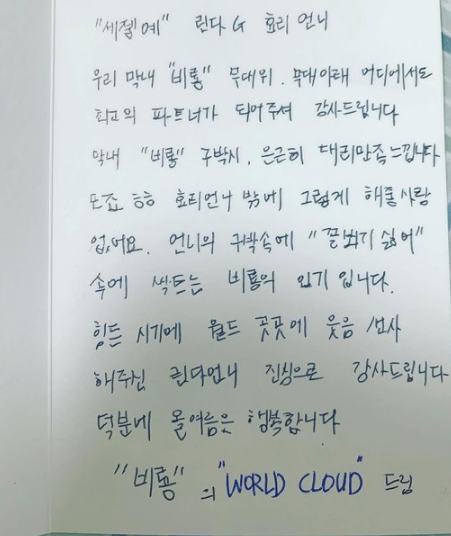 "세젤예" 린다 G 효리 언니
우리 막내 "비룡" 무대위. 무대아래 어디에서도
최고의 파트너가 되어주셔 감사드립니다
막내 "비룡" 구박시, 은근히 대리만족느낍니다
또죠 ㅎㅎ 효리언니 밖에 그렇게 해줄사람
없어요. 언니의 구박속에 "꼴뵈기 싫어"
속에 싹트는 비룡의 인기 입니다.
힘든 시기에 월드 곳곳에 웃음 선사
해주신 린다언니 진심으로 감사드립니다
덕분에 올여름은 행복합니다
"비룡" 의 "WORLD CLOUD" 드림